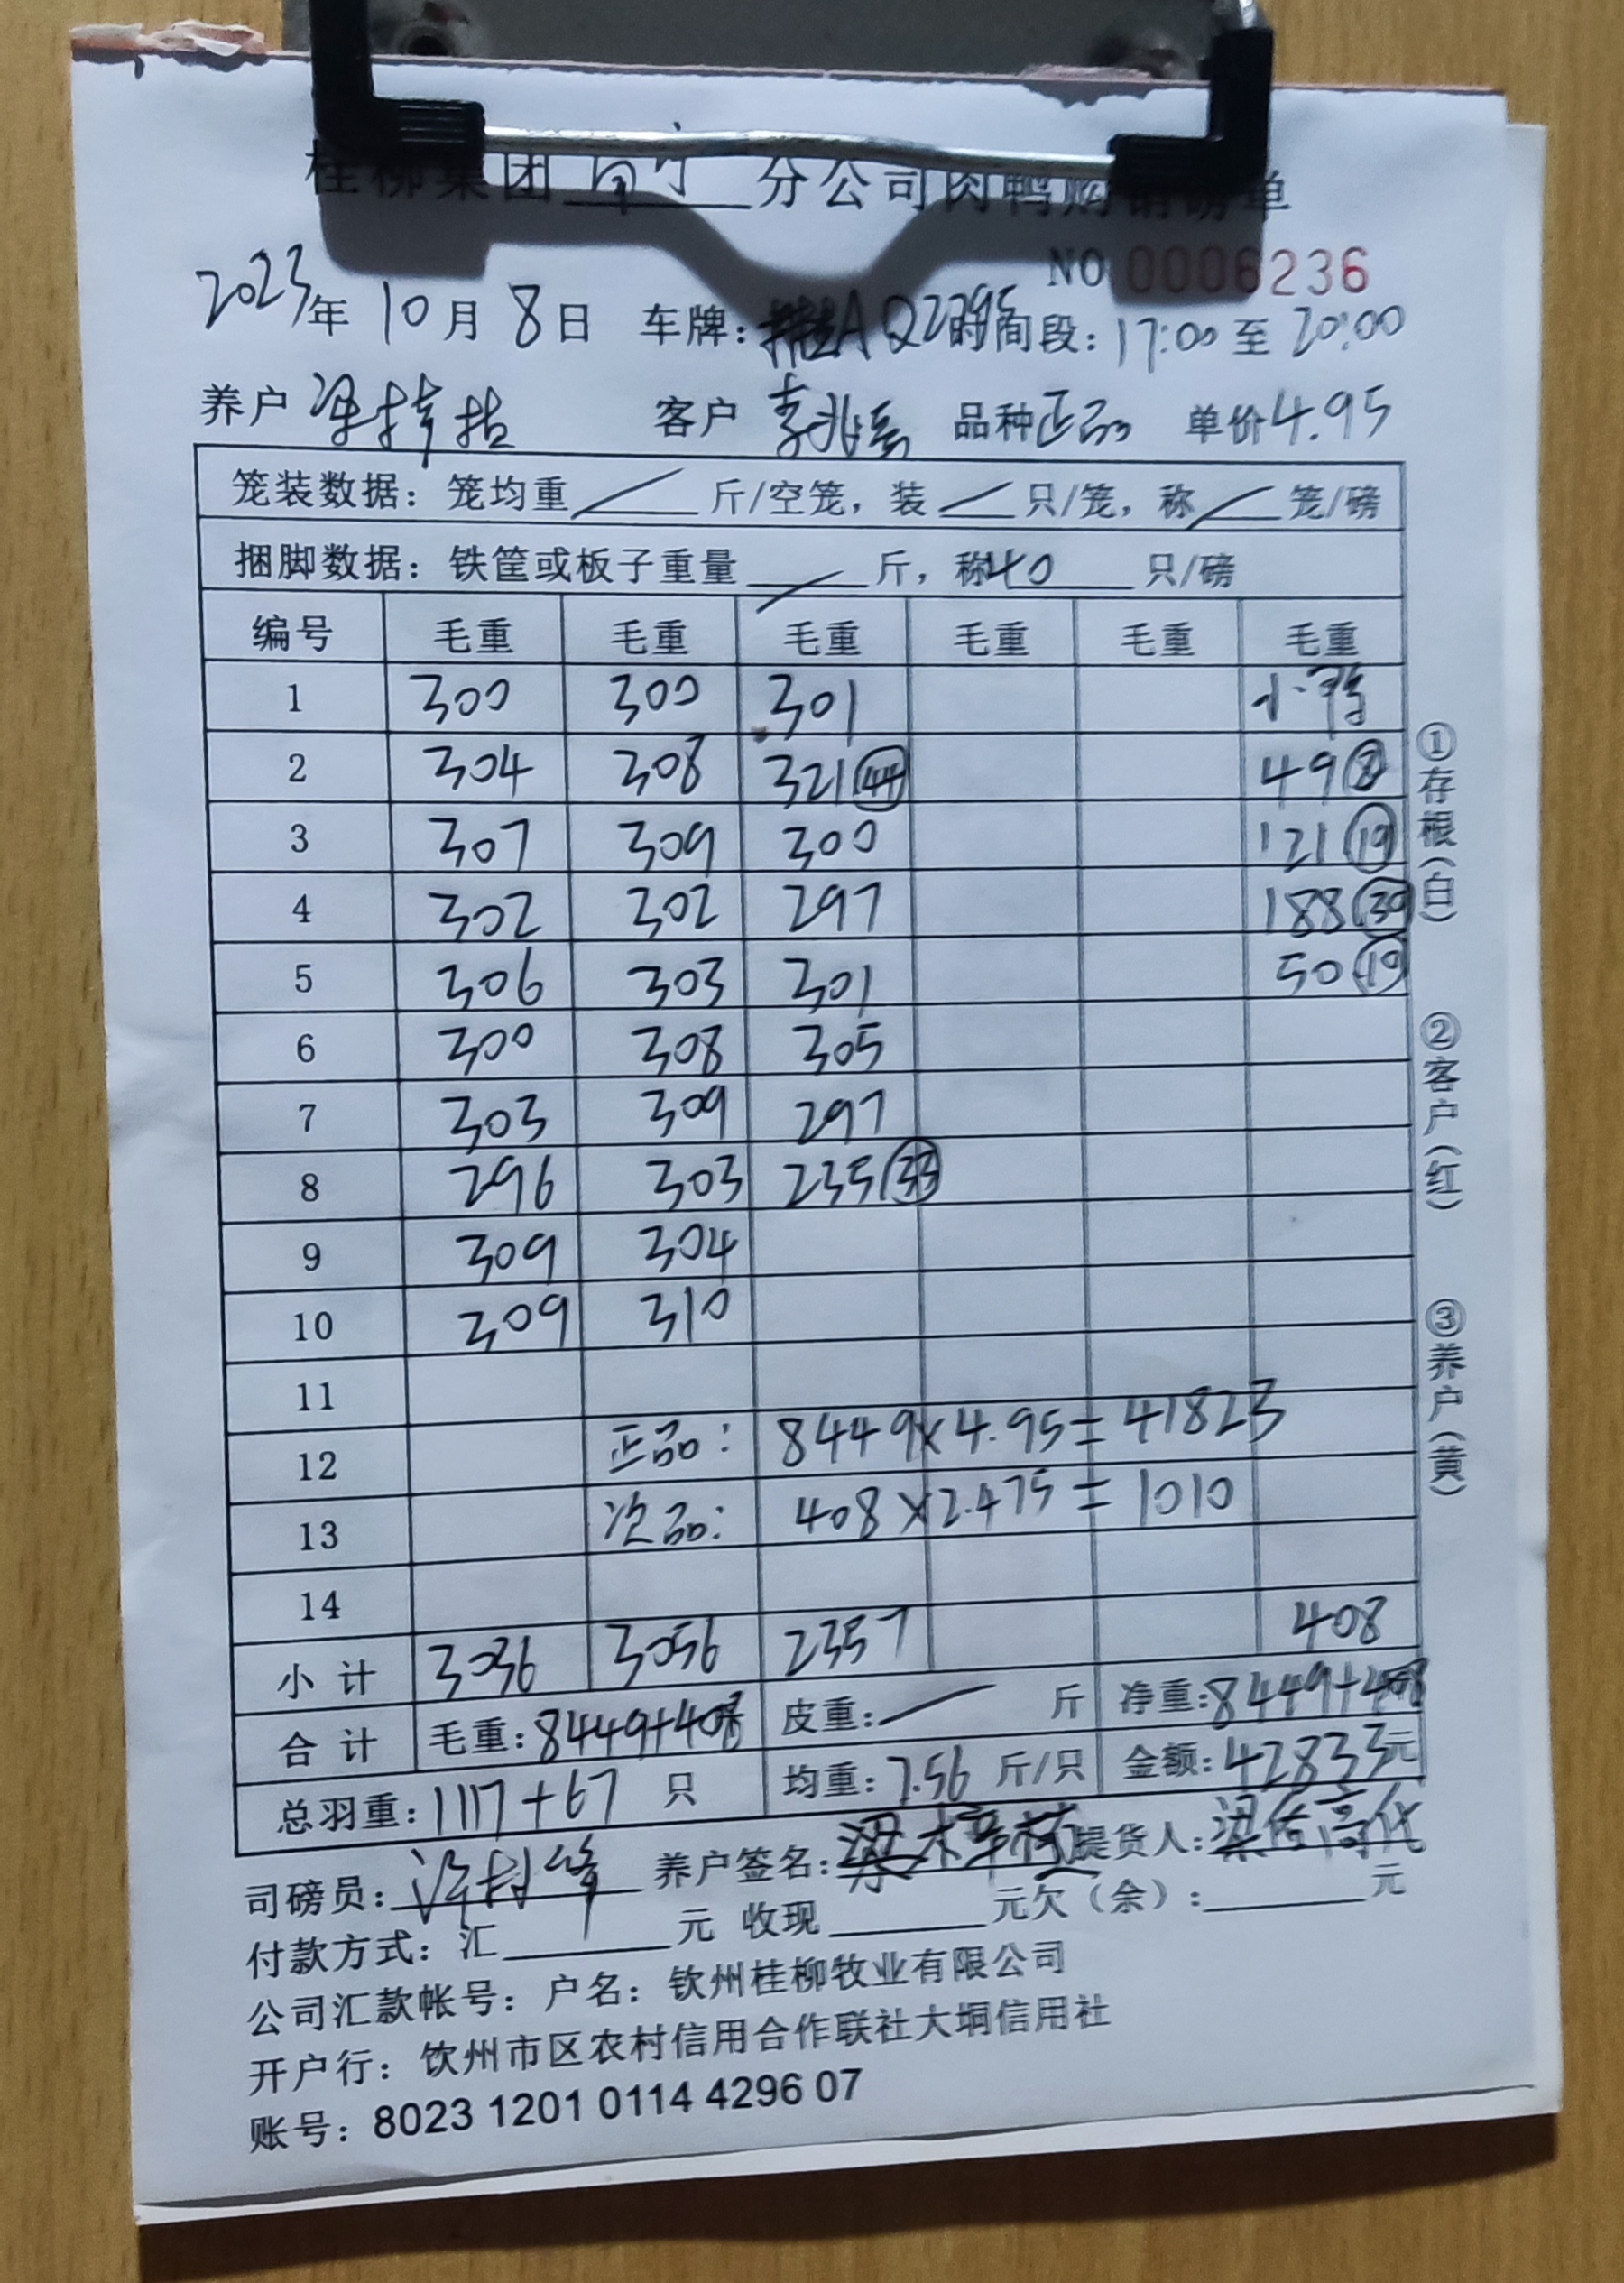 桂柳集团南宁分公司肉鸭购销磅单
NO 0006236
2023年10月8日 车牌:桂AQ2295 时间段:17:00至20:00
养户 客户 品种正品 单价4.95
笼装数据:笼均重/斤/空笼,装/只/笼,称/笼/磅
捆脚数据:铁筐或板子重量/斤,称40只/磅
编号 毛重 毛重 毛重 毛重 毛重 毛重
1 300 300 301 小鸭
2 304 308 321 44 49 8
3 307 309 300 121 19
4 302 302 297 188 30
5 306 303 301 50 10
6 300 308 305
7 303 309 297
8 296 303 235 33
9 309 304
10 309 310
11
12 正品: 8449×4.95=41823
13 次品: 408×2.475=1010
14
小计 3036 3056 2357 408
合计 毛重:8449+408 皮重:/斤 净重:8449+408
总羽重:1117+67只 均重:7.56斤/只 金额:42833元
司磅员: 养户签名: 提货人:
付款方式:汇 元 收现 元欠(余): 元
公司汇款帐号:户名:钦州桂柳牧业有限公司
开户行:钦州市区农村信用合作联社大垌信用社
账号:8023 1201 0114 4296 07
①存根(白) ②客户(红) ③养户(黄)